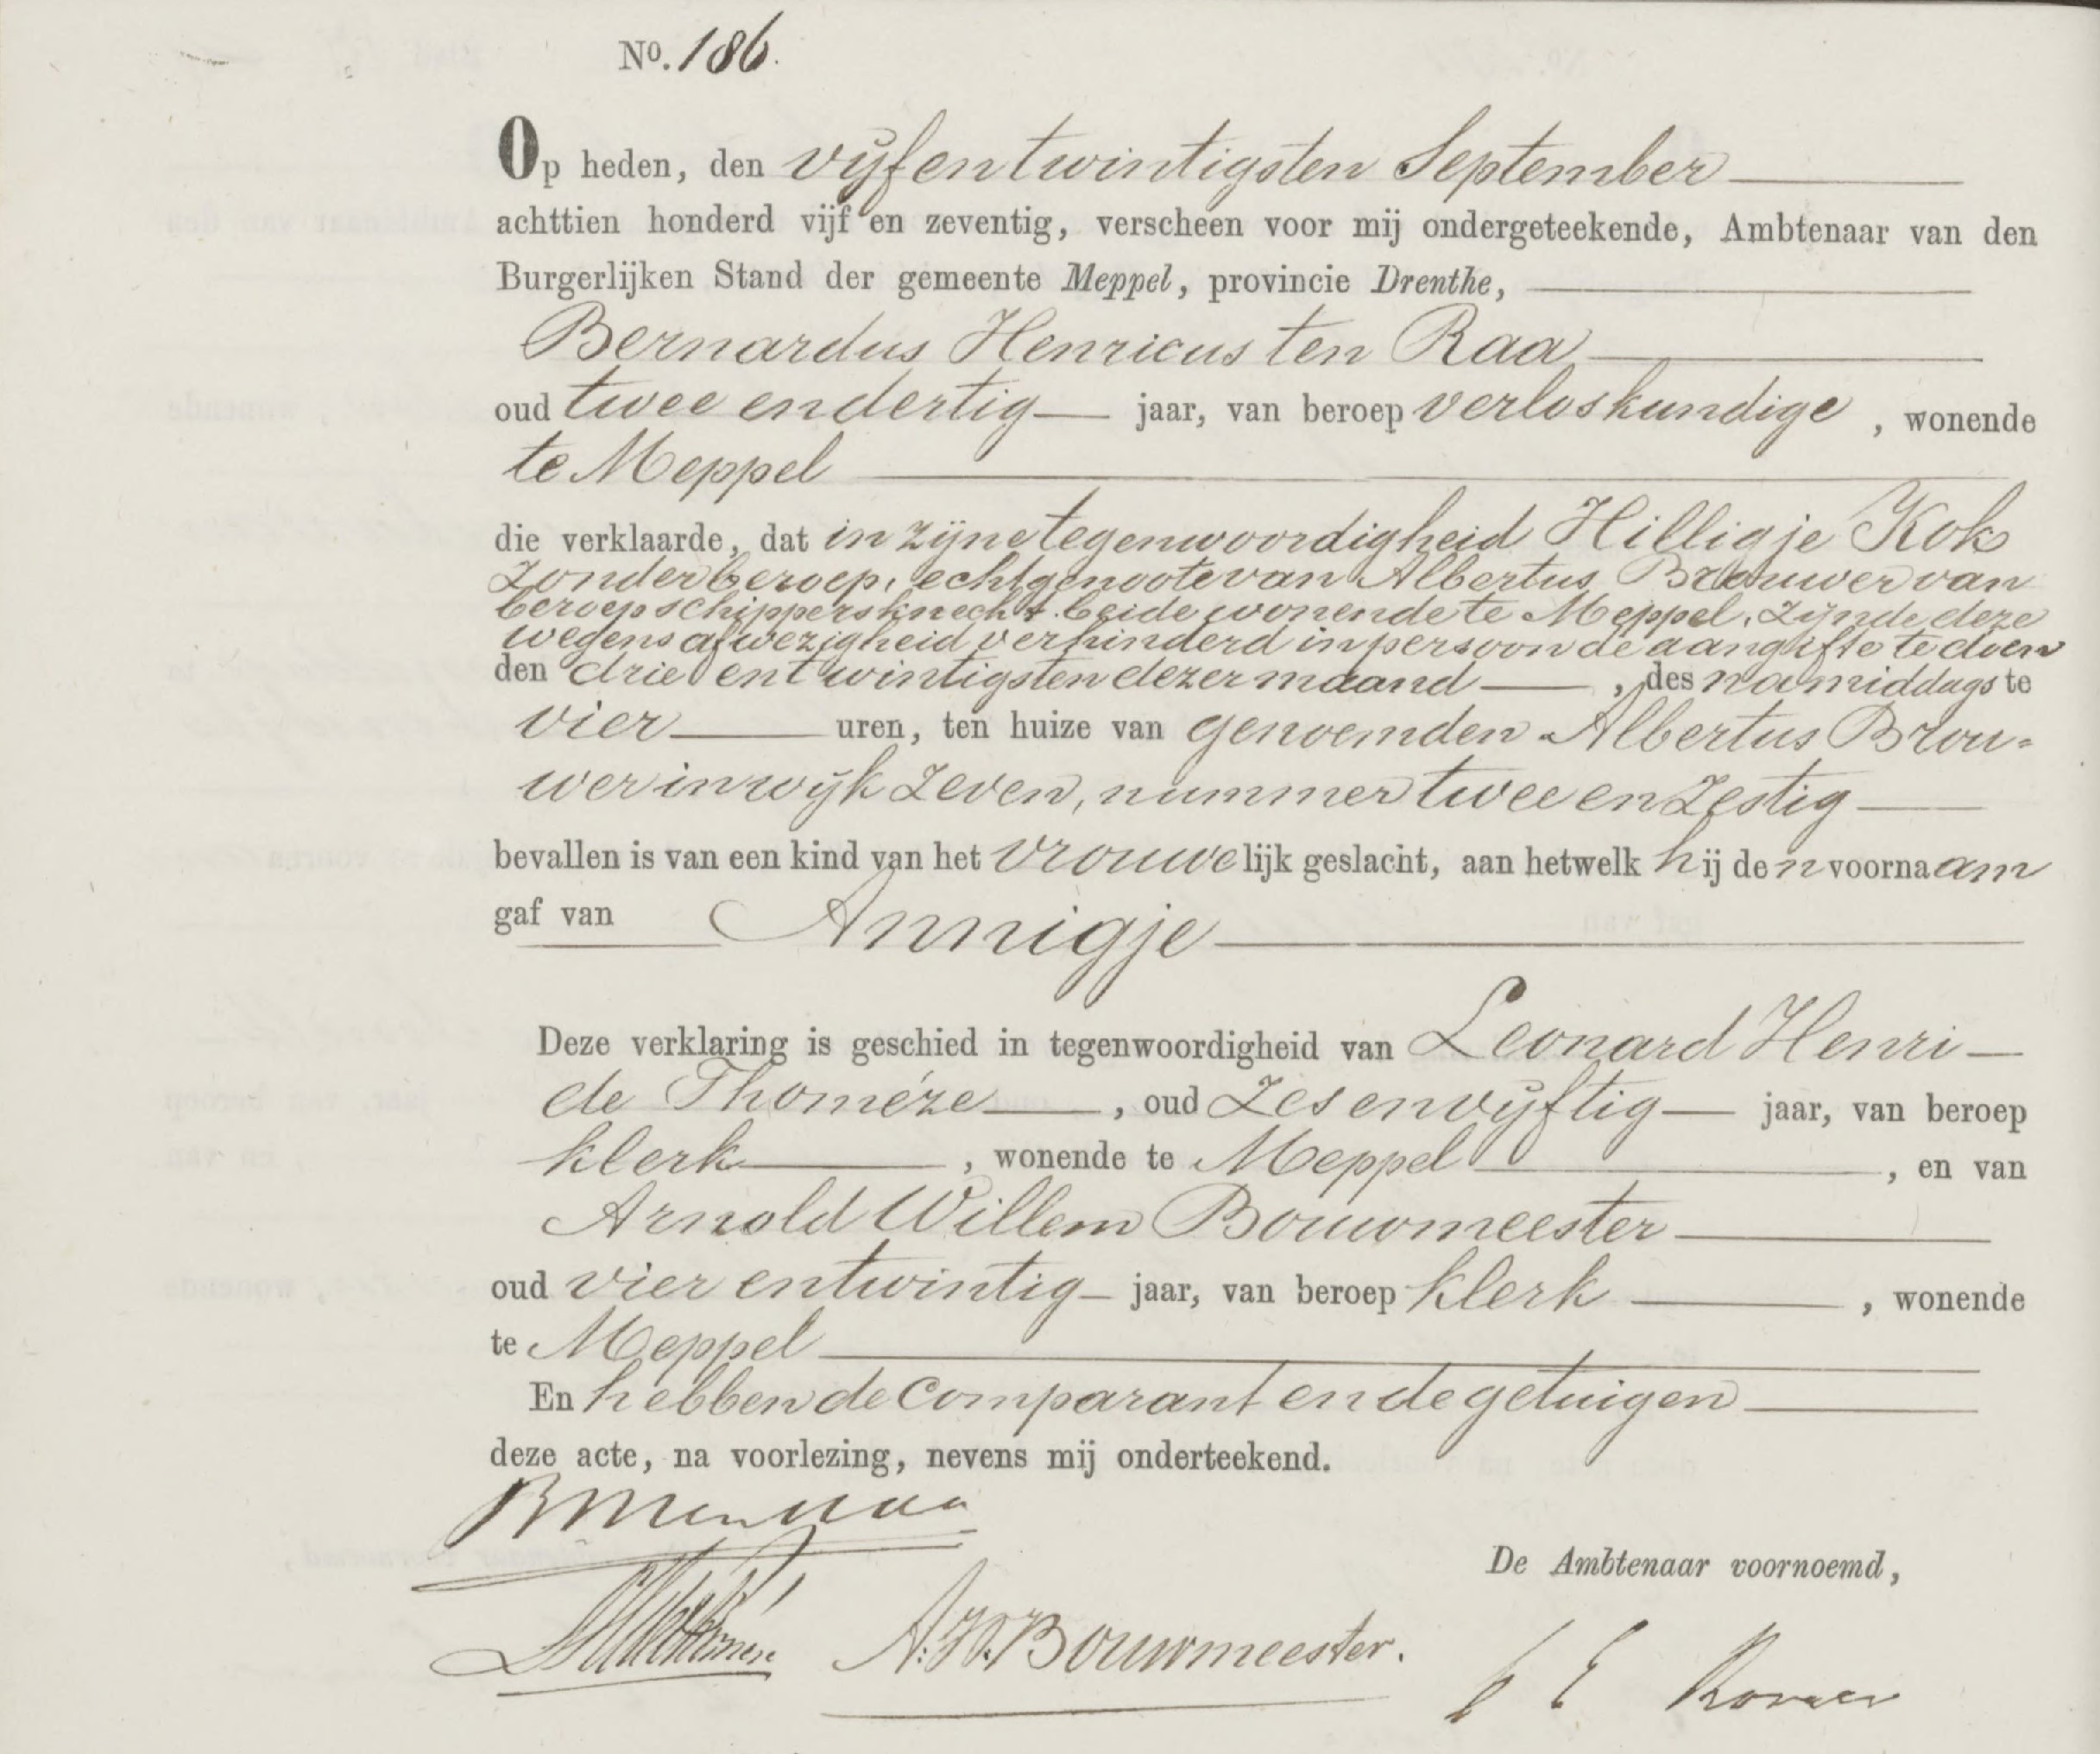 No. 186.
Op heden, den vijfentwintigsten September
achttien honderd vijf en zeventig, verscheen voor mij ondergeteekende, Ambtenaar van den
Burgerlijken Stand der gemeente Meppel, provincie Drenthe,
Bernardus Henricus ten Raa
oud twee en dertig jaar, van beroep verloskundige, wonende
te Meppel
die verklaarde, dat in zijne tegenwoordigheid Hilligje Kok
zonder beroep, echtgenoote van Albertus Brouwer van
beroep schippersknecht beide wonende te Meppel, zijnde deze
wegens afwezigheid verhinderd in persoon de aangifte te doen
den drie en twintigsten dezer maand, des namiddags te
vier uren, ten huize van genoemden Albertus Brou=
wer in wijk zeven, nummer twee en zestig
bevallen is van een kind van het vrouwelijk geslacht, aan hetwelk hij den voornaam
gaf van Annigje
Deze verklaring is geschied in tegenwoordigheid van Leonard Henri
de Thoméze, oud zes en vijftig jaar, van beroep
klerk, wonende te Meppel, en van
Arnold Willem Bouwmeester
oud vier en twintig jaar, van beroep klerk, wonende
te Meppel
En hebben de Comparant en de getuigen
deze acte, na voorlezing, nevens mij onderteekend.
De Ambtenaar voornoemd,
A. W. Bouwmeester.